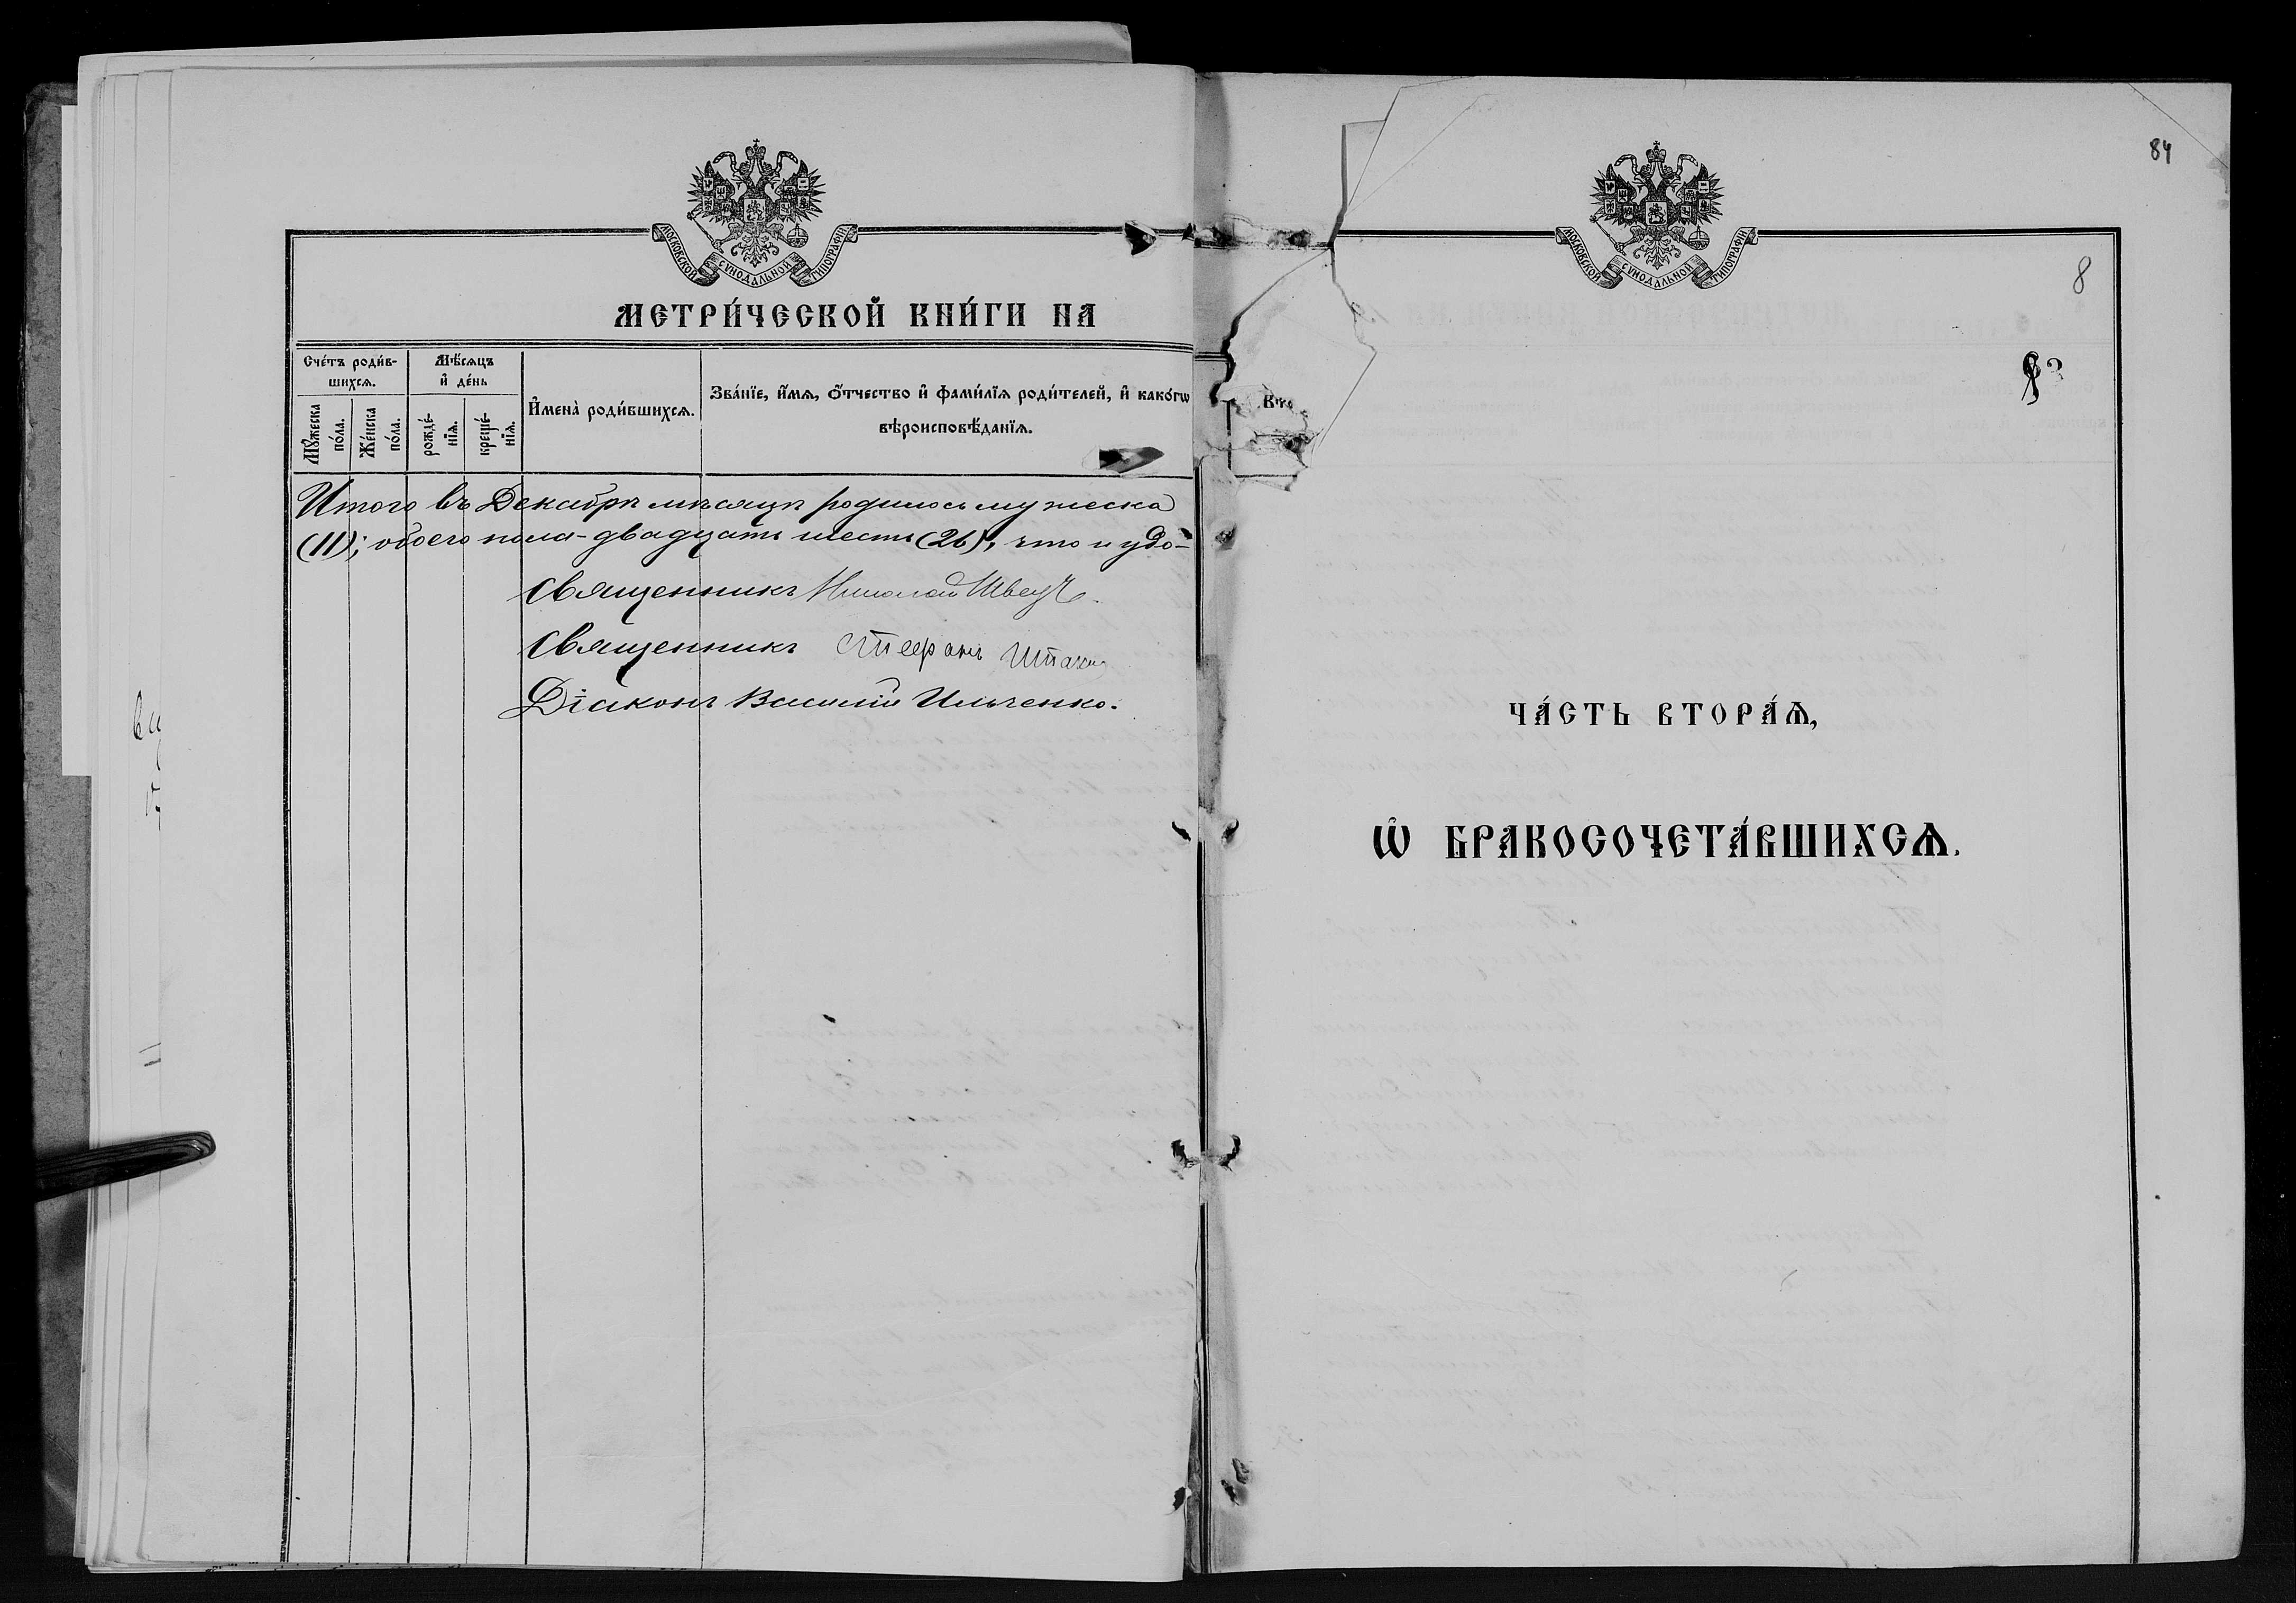 МОСКОВСКОЙ СѴНОДАЛЬНОЙ ТИПОГРАФІИ
МЕТРИ́ЧЕСКОЙ КНИ́ГИ НА
Сче́тъ роди́в-
шихсѧ.
Мѣ́сѧцъ
и҆ де́нь
И҆мена̀ роди́вшихсѧ.
Зва́нїе, и҆́мѧ, ѻ҆́тчество и҆ фами́лїѧ роди́телей, и҆ како́гѡ
вѣроисповѣ́данїѧ.
Мꙋ́жеска
по́ла.
Же́нска
по́ла.
рожде́-
нїѧ.
креще́-
нїѧ.
Итого въ Декабрѣ мѣсяцѣ родилось мужеска
(11); обоего пола - двадцать шесть (26), что и удо-
Священникъ Николай Швецъ.
Священникъ Стефанъ
Діаконъ Василій Ильченко.
84
МОСКОВСКОЙ СѴНОДАЛЬНОЙ ТИПОГРАФІИ
8
83
ЧА́СТЬ ВТОРА́Ѧ,
Ѡ҆ БРАКОСОЧЕТА́ВШИХСѦ.